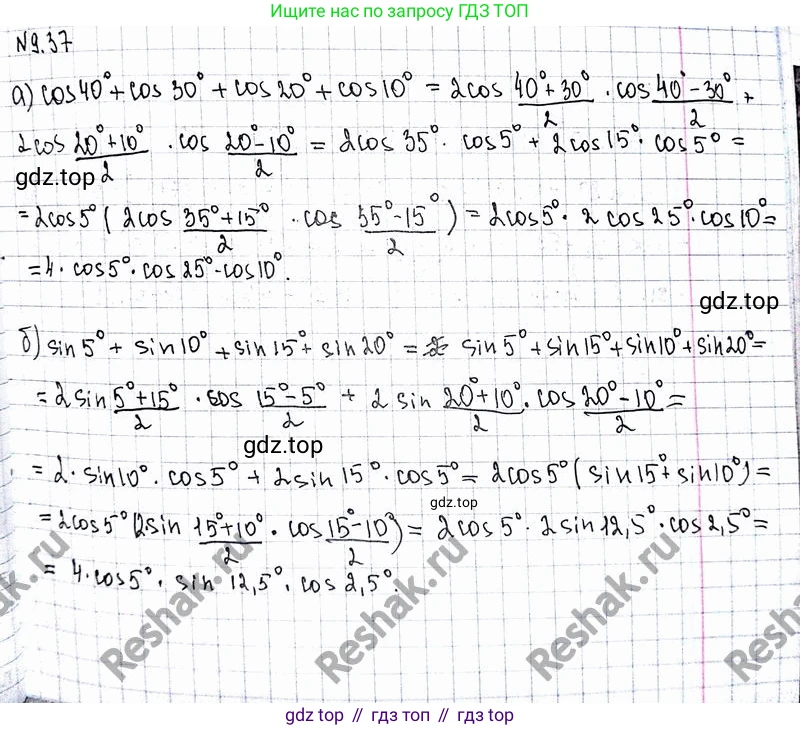 Ищите нас по запросу ГДЗ ТОП
№9.37
а) cos40° + cos 30° + cos20° + cos10° = 2cos (40°+30°)/2 · cos (40°-30°)/2 +
2cos (20°+10°)/2 · cos (20°-10°)/2 = 2cos 35° · cos5° + 2cos15° · cos5° =
gdz.top
= 2cos5° ( 2cos (35°+15°)/2 · cos (35°-15°)/2 ) = 2cos5° · 2 cos 25° · cos10° =
= 4 · cos5° · cos 25° · cos10°.
gdz.top
б) sin 5° + sin10° + sin 15° + sin 20° = sin 5° + sin15° + sin10° + sin20° =
= 2 sin (5°+15°)/2 · cos (15°-5°)/2 + 2 sin (20°+10°)/2 · cos (20°-10°)/2 =
gdz.top
= 2 · sin10° · cos5° + 2 sin 15° · cos5° = 2cos5° ( sin15° + sin10° ) =
gdz.top
= 2cos5° (2sin (15°+10°)/2 · cos (15°-10°)/2 ) = 2cos 5° · 2 sin 12,5° · cos 2,5° =
= 4 · cos5° · sin 12,5° · cos 2,5°.
Reshak.ru
Reshak.ru
Reshak.ru
gdz top // гдз топ // gdz top